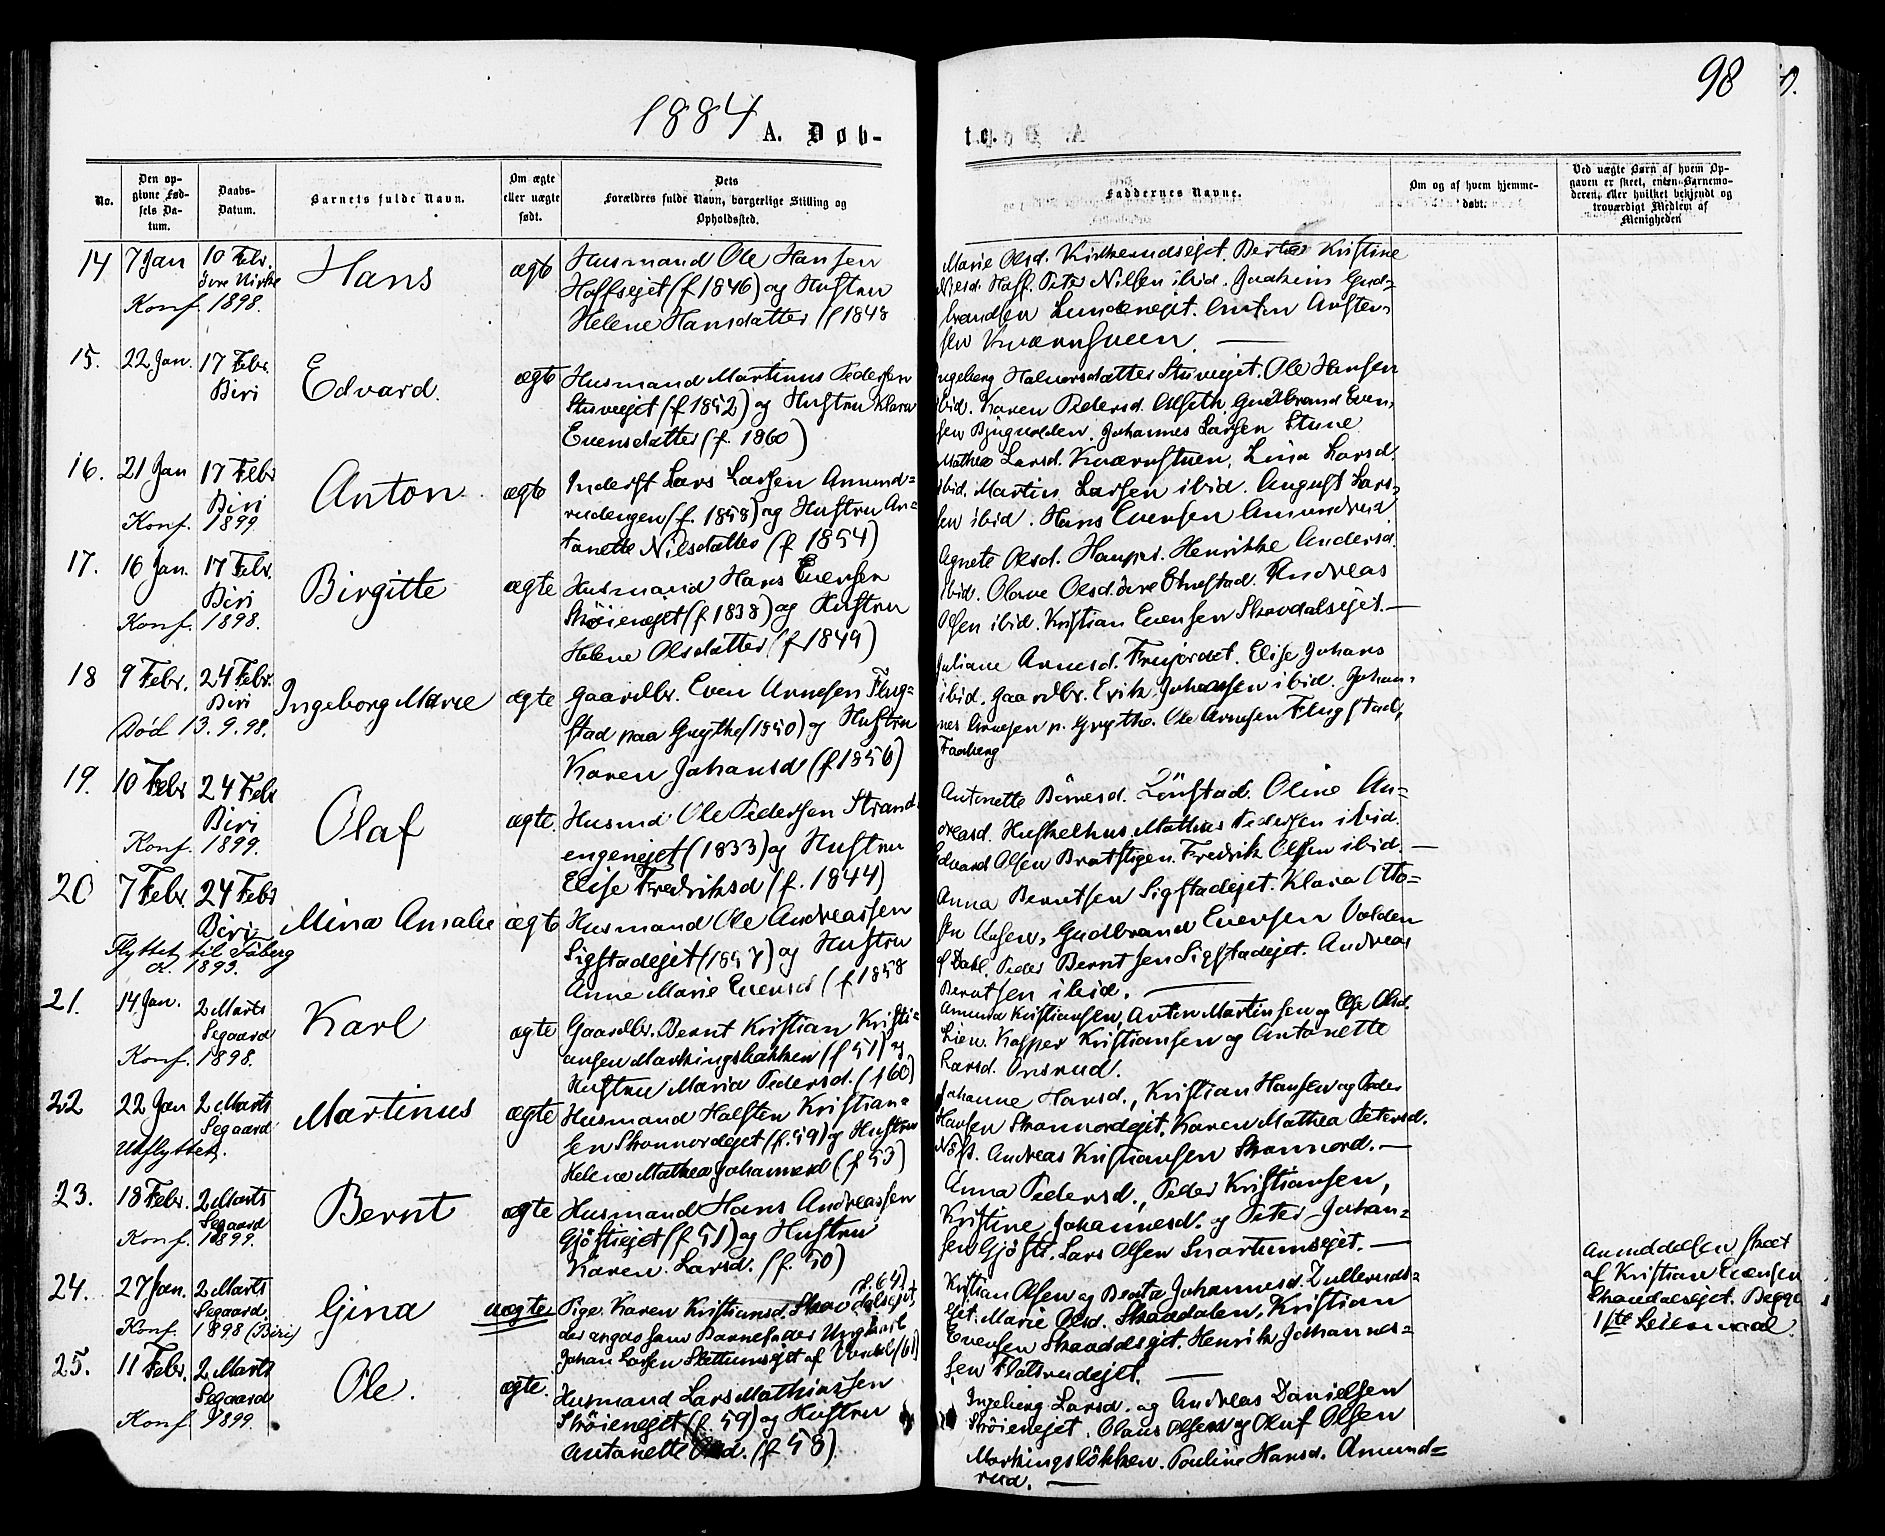 1884
A. Døb-
No.
Den op-
givne Fød-
sels Da-
tum.
Daabs-
Datum.
Barnets fulde Navn.
Om ægte
eller uægte
født.
Dets
Forældres fulde Navn, borgerlige Stilling og
Opholdssted.
14 7 Jan 10 Febr. Hans ægte Husmand Ole Hansen
øvre Kirke Hoffsejet (f 1846) og Hustru
Konf. 1898. Helene Hansdatter (f 1848
15. 22 Jan. 17 Febr. Edvard. ægte Husmand Martinus Pedersen
Biri Stuvejet (f 1852) og Hustru Klara
Evensdatter (f. 1860)
16. 21 Jan 17 Febr Anton ægte Inderst Lars Larsen Amund=
Biri rudengen (f. 1858) og Hustru An=
Konf. 1899. tonette Nilsdatter (f 1854)
17. 16 Jan. 17 Febr. Birgitte ægte Husmand Hans Evensen
Biri Sköienejet (f 1838) og Hustru
Konf. 1898. Helene Olsdatter (f 1849)
18 9 Febr. 24 Febr. Ingeborg Marie ægte Gaardbr. Even Arnesen Flug=
Biri stad paa Grythe (1850) og Hustru
Död 13.9.98. Karen Johansd (f 1856)
19. 10 Febr 24 Febr Olaf ægte. Husmd. Ole Pedersen Strand
Biri engenejet (1833) og Hustru
Konf. 1899. Elise Fredriksd (f. 1844)
20 7 Febr. 24 Febr Mina Amalie ægte Husmand Ole Andreassen
Biri Sigstadejet (1857) og Hustru
Flyttet til Fåberg
1893. Anne Marie Evensd (f 1858
21. 14 Jan. 2 Marts Karl ægte Gaardbr. Bernt Kristian Kristi=
Segaard ansen Markingsbakken (f 51) og
Konf. 1898. Hustru Maria Pedersd. (f 60)
22 22 Jan 2 Marts Martinus ægte Husmand Halsten Kristian=
Segaard sen Skonnordejet (f. 59) og Hustru
Udflyttet. Helene Mathea Johannesd (f 53)
23. 18 Febr. 2 Marts Bernt ægte Husmand Hans Andreassen
Segaard Gjöstiejet (f 51) og Hustru
Konf. 1899. Karen Larsd. (f. 50)
24. 27 Jan. 2 Marts Gina uægte Pige Karen Kristiansd. Skaaddalsejet, (f. 64)
Segaard der angav som Barnefader Ungkarl
Konf. 1898 (Biri) Johan Larsen Slettumsejet af Vardal (61)
25. 11 Febr. 2 Marts Ole. ægte. Husmand Lars Mathiassen
Segaard Sköienejet (f. 59) og Hustru
Konf. 1899. Antonette (f 58)
98
tc.
Faddernes Navne.
Om og af hvem hjemme-
døbt.
Ved uægte Børn af hvem Op-
gaven er skeet, enten Barnemo-
deren, eller hvilket bekjendt og
troværdigt Medlem af
Menigheden
Marie Olsd. Kirkerudsejet. Berthe Kristine
Niesd. Hoff. Peter Nilsen ibid. Joakim Gud=
brandsen Lundenejet. Anton Austen=
sen Kværnstuen. —
Ingeborg Halvorsdatter Stuvejet. Ole Hansen
ibid. Karen Pedersd. Alseth. Gudbrand Even,
sen Bjugvolden. Johannes Larsen Stuve
Mathea Larsd. Kværnstuen, Lina Larsd.
ibid. Martin Larsen ibid. August Lars,
sen ibid. Hans Evensen Amundrud
Agnete Olsd. Henrikke Andersd.
ibid. Olave Olsd övre Andreas
Olsen ibid. Kristian Evensen Skaddalsejet. —
Juliane Arnesd. Elise Johans
ibid. Gaardbr. Erik Johansen ibid. Johan=
nes Arnesen p. Grythe. Ole Arnesen Flugstad,
Faaberg
Antonette Lönstad. Oline An=
dreasd. Huskelhus. Mathias Pedersen ibid.
Edvard Olsen Bratstigen. Fredrik Olsen ibid. —
Anna Berntsen Sigstadejet. Klara Otto=
Gudbrand Evensen Volden
af Dahl. Peder Berntsen Sigstadejet. Andreas
Berntsen ibid. —
Amund Kristiansen, Anton Martinsen og Else Olsd.
Lien. Kasper Kristiansen og Antonette
Larsd. Onsrud.
Johanne Hansd., Kristian Hansen og Peder
Hansen Skonnordejet. Karen Mathea Petersd.
Andreas Kristiansen Skonnord. —
Anna Pedersd., Peder Kristiansen,
Kristine Johannesd. og Peter Johan=
sen Gjösti. Lars Olsen Snartumsejet. —
Kristian Olsen og Beata Johannesd. Zullerud=
ejet. Marie Olsd. Skaaddalen, Kristian
Evensen Skaaddalsejet. Henrik Johannes=
sen Flatrudejet. —
Ingeborg Larsd. og Andreas Danielsen
Sköienejet. Olaus Olsen og Oluf Olsen
Markingslökken. Pauline Hansd. Amund=
rud. —
Anmeldelsen skeet
af Kristian Evensen
Skaadalsejet. Begges
1ste Leiermaal.